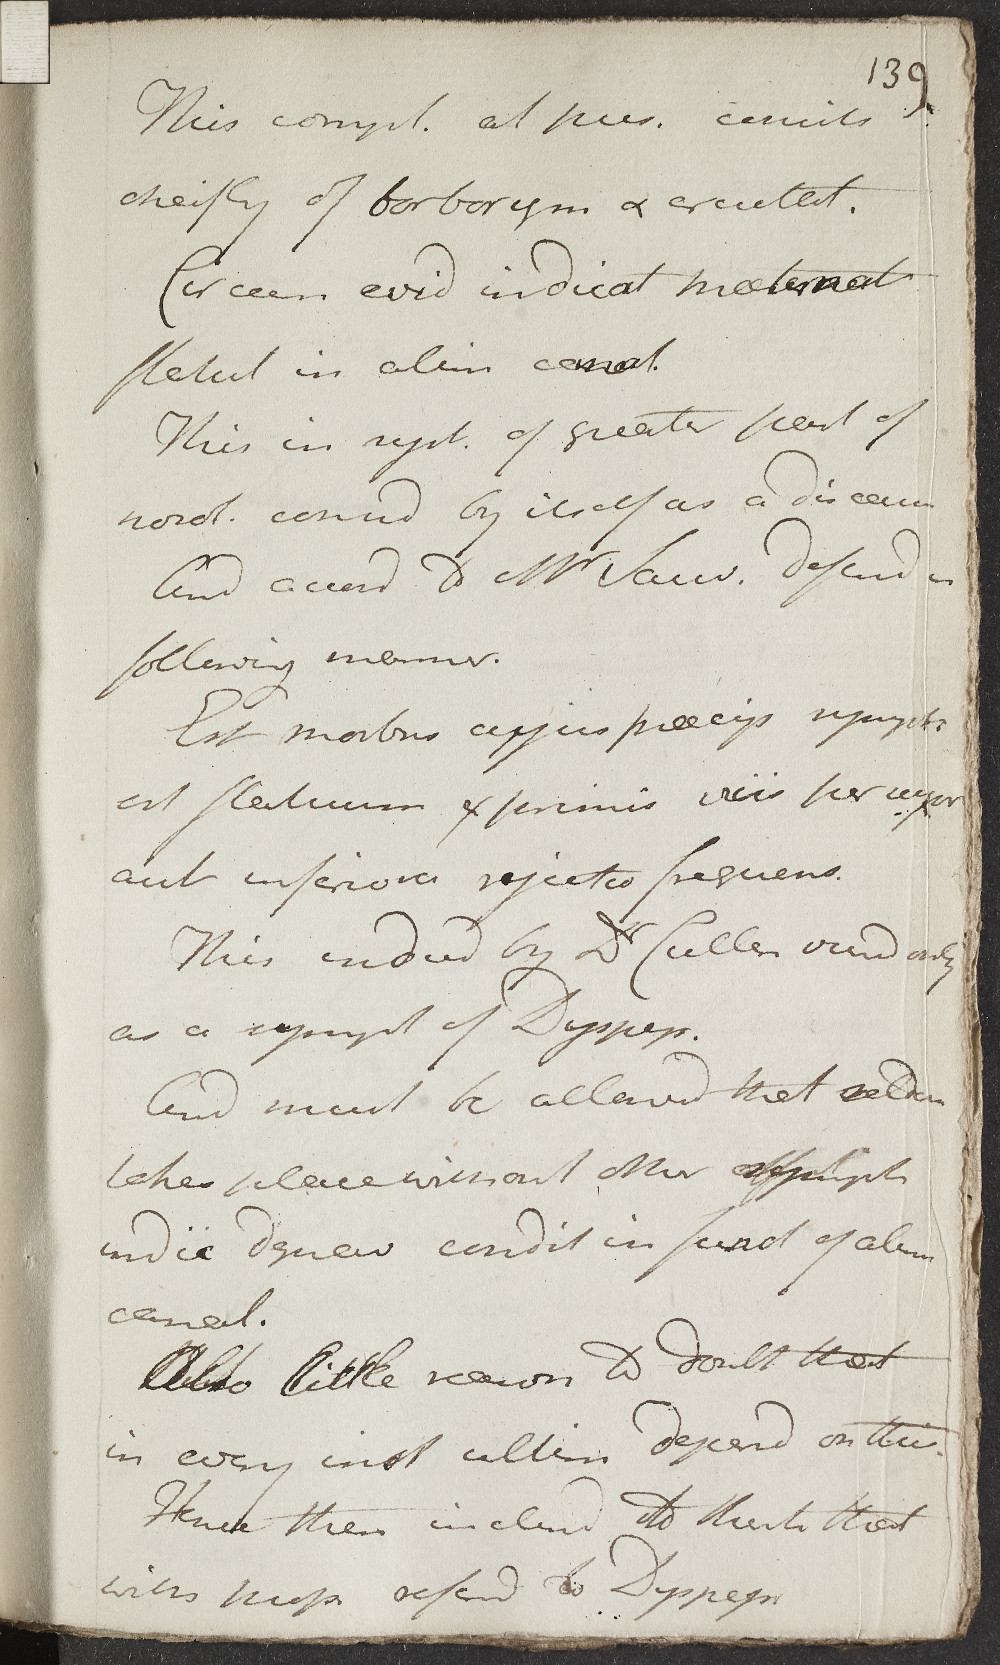 139
This compt. at pres. consists
cheifly of borborygm & eructat.
Circum evid indicat maternat
flatul in alim canal.
This in syst. of greater part of
nosol. consid by itself as a disease
And accord to Mr Sauv. defined in
following manner.
Est morbus cujus præcip sympt.
est flatuum ex primis viis per super
aut inferiora rejectio frequens.
This indeed by Dr Cullen consid only
as a sympt of Dyspep.
And must be allowed that seldom
takes place without other sympt
indic deprav condit in funct of alim
canal.
Also little reason to doubt that
in every inst ultim depend on this.
Hence then inclind to think that
with prop. referd to Dyspeps